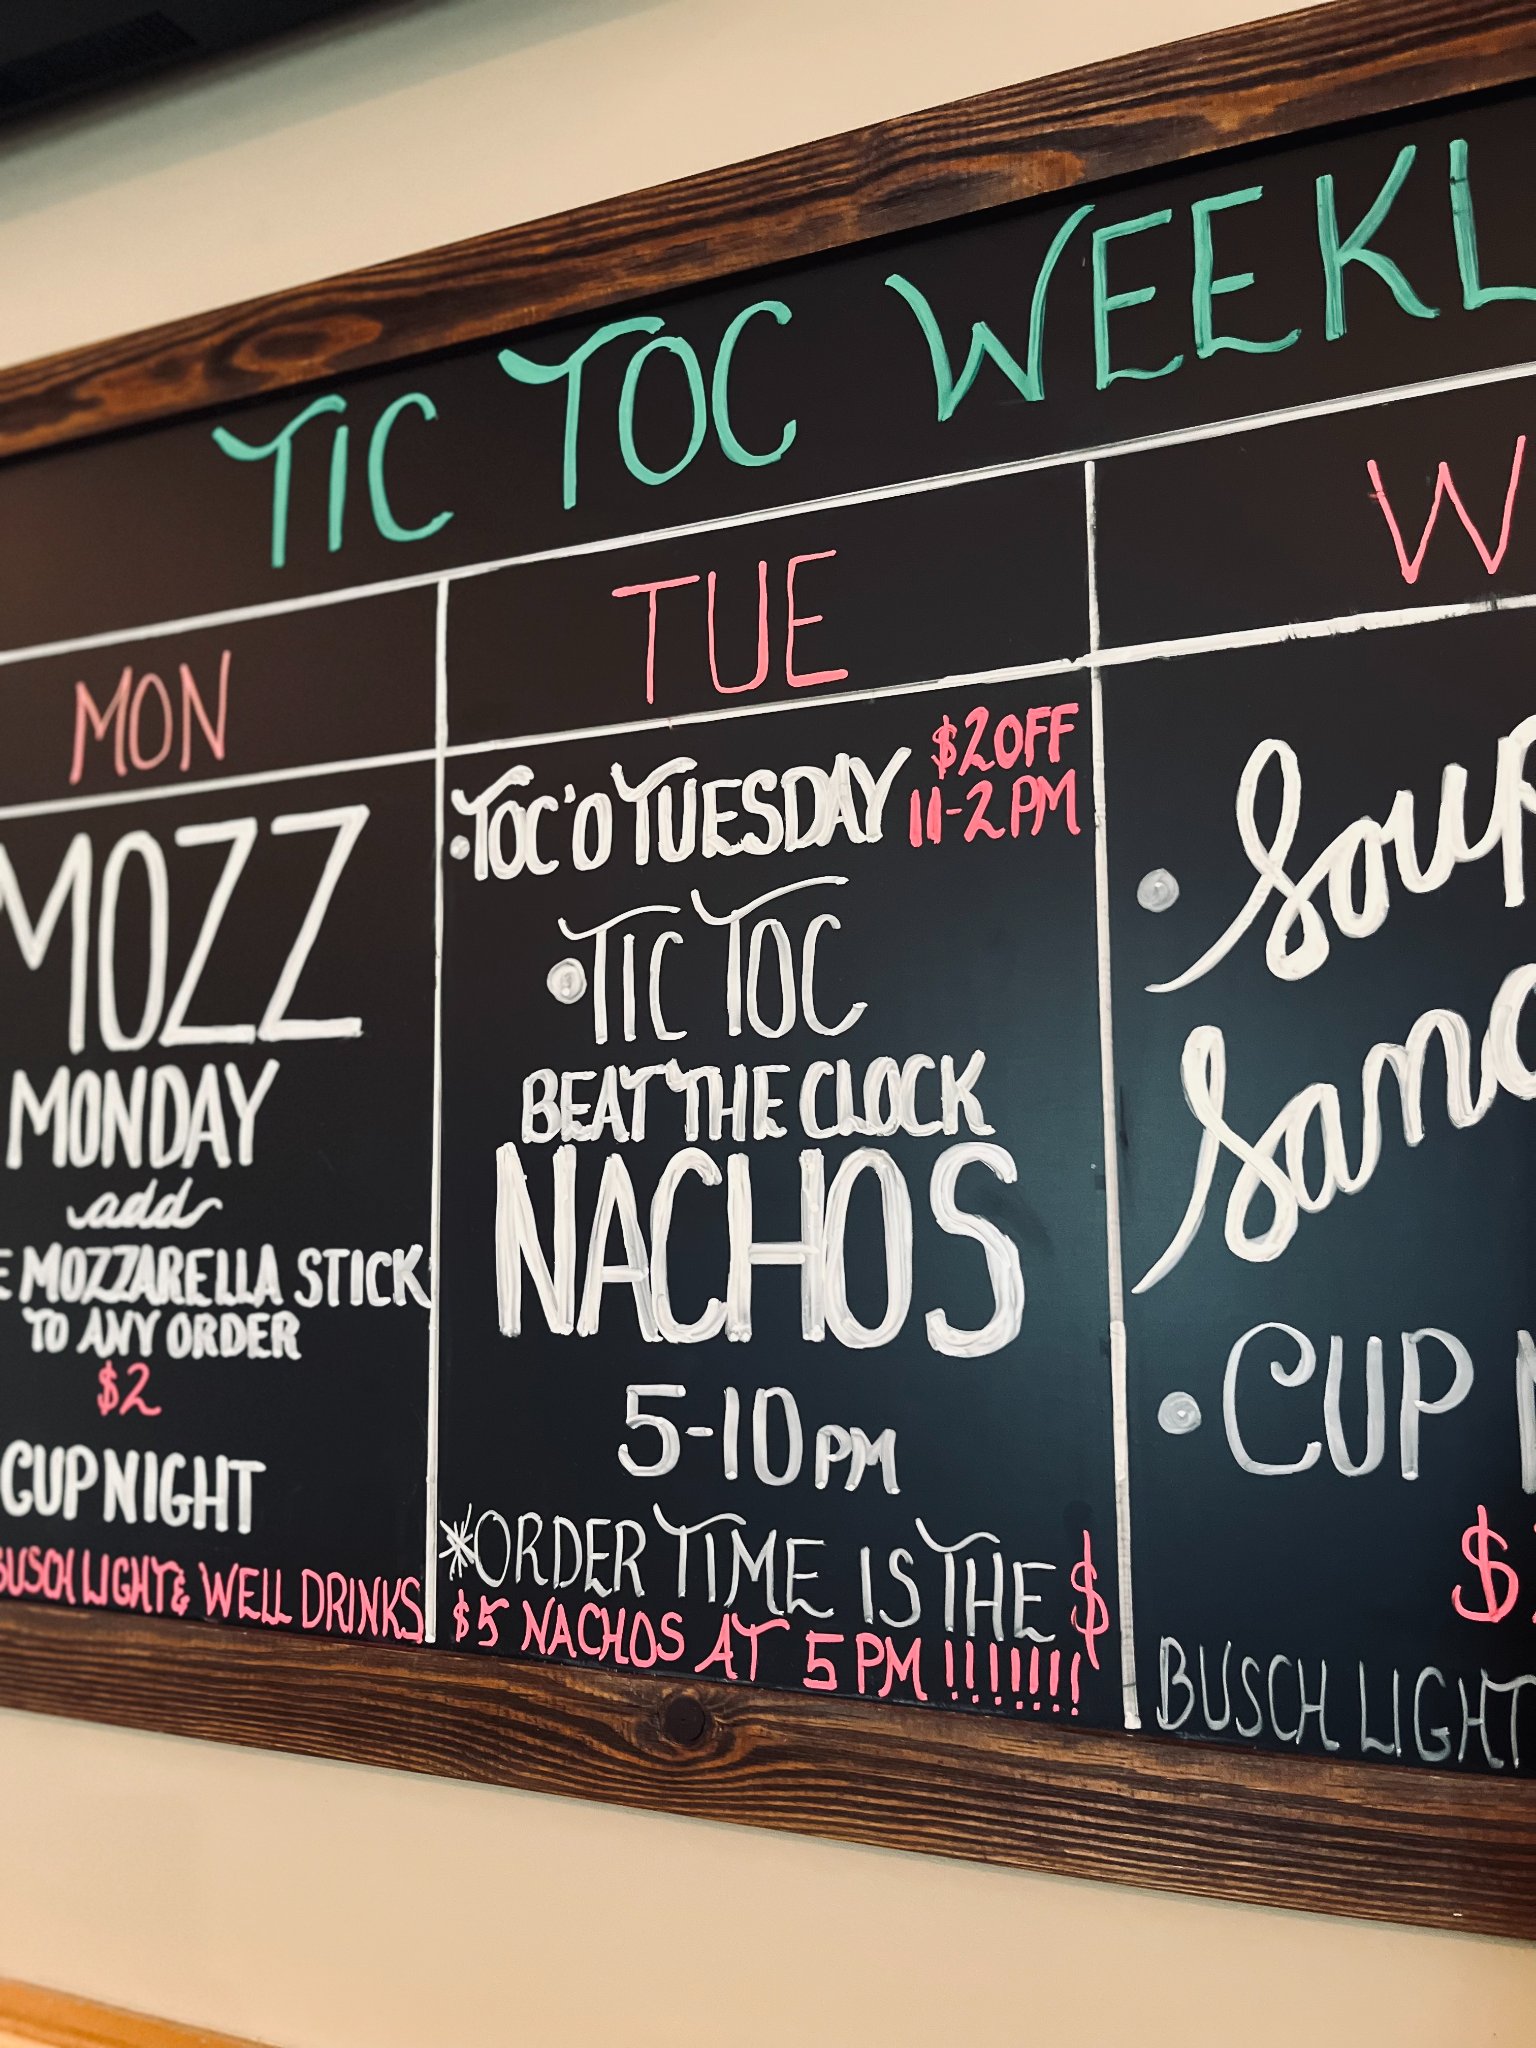 TIC TOC WEEKL
MON
MOZZ
MONDAY
add
E MOZZARELLA STICK
TO ANY ORDER
$2
CUP NIGHT
BUSCH LIGHT & WELL DRINKS
TUE
• TOC'O TUESDAY $2 OFF
11-2 PM
• TIC TOC
BEAT THE CLOCK
NACHOS
5-10 PM
*ORDER TIME IS THE $
$5 NACHOS AT 5 PM !!!!!!!
W
• Soup
Sand
• CUP
$
BUSCH LIGHT